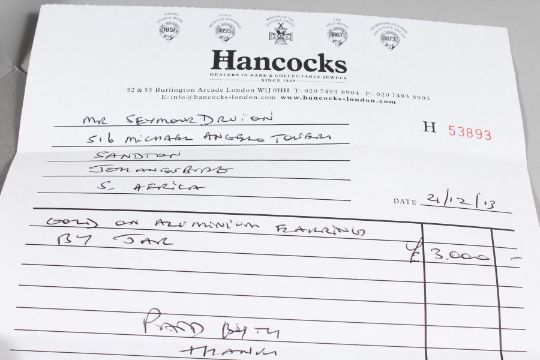 Hancocks
DEALERS IN RARE & COLLECTABLE JEWELS
SINCE 1849
52 & 53 Burlington Arcade London W1J 0HH T: 020 7493 8904 F: 020 7493 8905
E: info@hancocks-london.com www.hancocks-london.com
MR SEYMOUR DRUION
516 MICHAEL ANGELO TOWERS
SANDTON
JOHANESBURG
S. AFRICA
H 53893
DATE 21/12/13
GOLD ON ALUMINIUM EARRINGS
BY JAR £ 3,000 -
PAID BY
THANKS